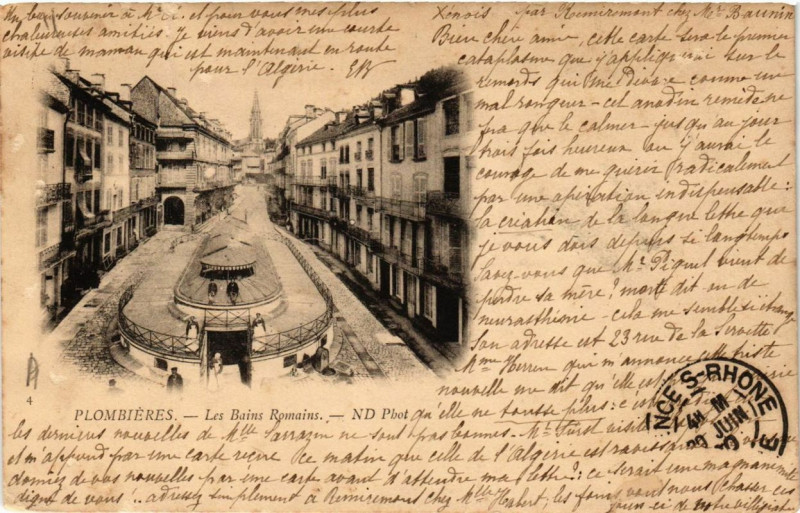 Un bon souvenir à Mr A. et pour vous mes plus
chaleureuses amitiés. Je viens d'avoir une courte
visite de maman qui est maintenant en route
pour l'Algérie.
Xénois. par Remiremont chez Mr Baunin
Bien chère amie, cette carte sera le premier
cataplasme que j'appliquerai sur le
remords qui me dévore comme un
mal rongeur - cet anodin remède ne
fera que le calmer jusqu'au jour
trois fois heureux où j'aurai le
courage de me guérir radicalement
par une opération indispensable:
la création de la longue lettre que
je vous dois depuis si longtemps
Savez-vous que Mr Piquet vient de
perdre sa mère? morte dit on de
neurasthénie - cela me semble si étrange
Son adresse est 23 rue de la Servette
Mme Herren qui m'annonce cette triste
nouvelle me dit qu'elle
4
PLOMBIÈRES. — Les Bains Romains. — ND Phot
qu'elle ne tousse plus: c'est
NCE S-RHONE
4 E M
JUIN
les dernières nouvelles de Mlle Sarrazin ne sont pas bonnes. Mr visite
et m'apprend par une carte reçue ce matin que celle de l'Algérie est ravissante
donnez de vos nouvelles par une carte avant d'attendre ma lettre!: ce serait une magnanimité
digne de vous!.. adressez simplement à Remiremont chez Mlle Hubert; les foins vont nous chasser ces
jours ci de notre villégiature